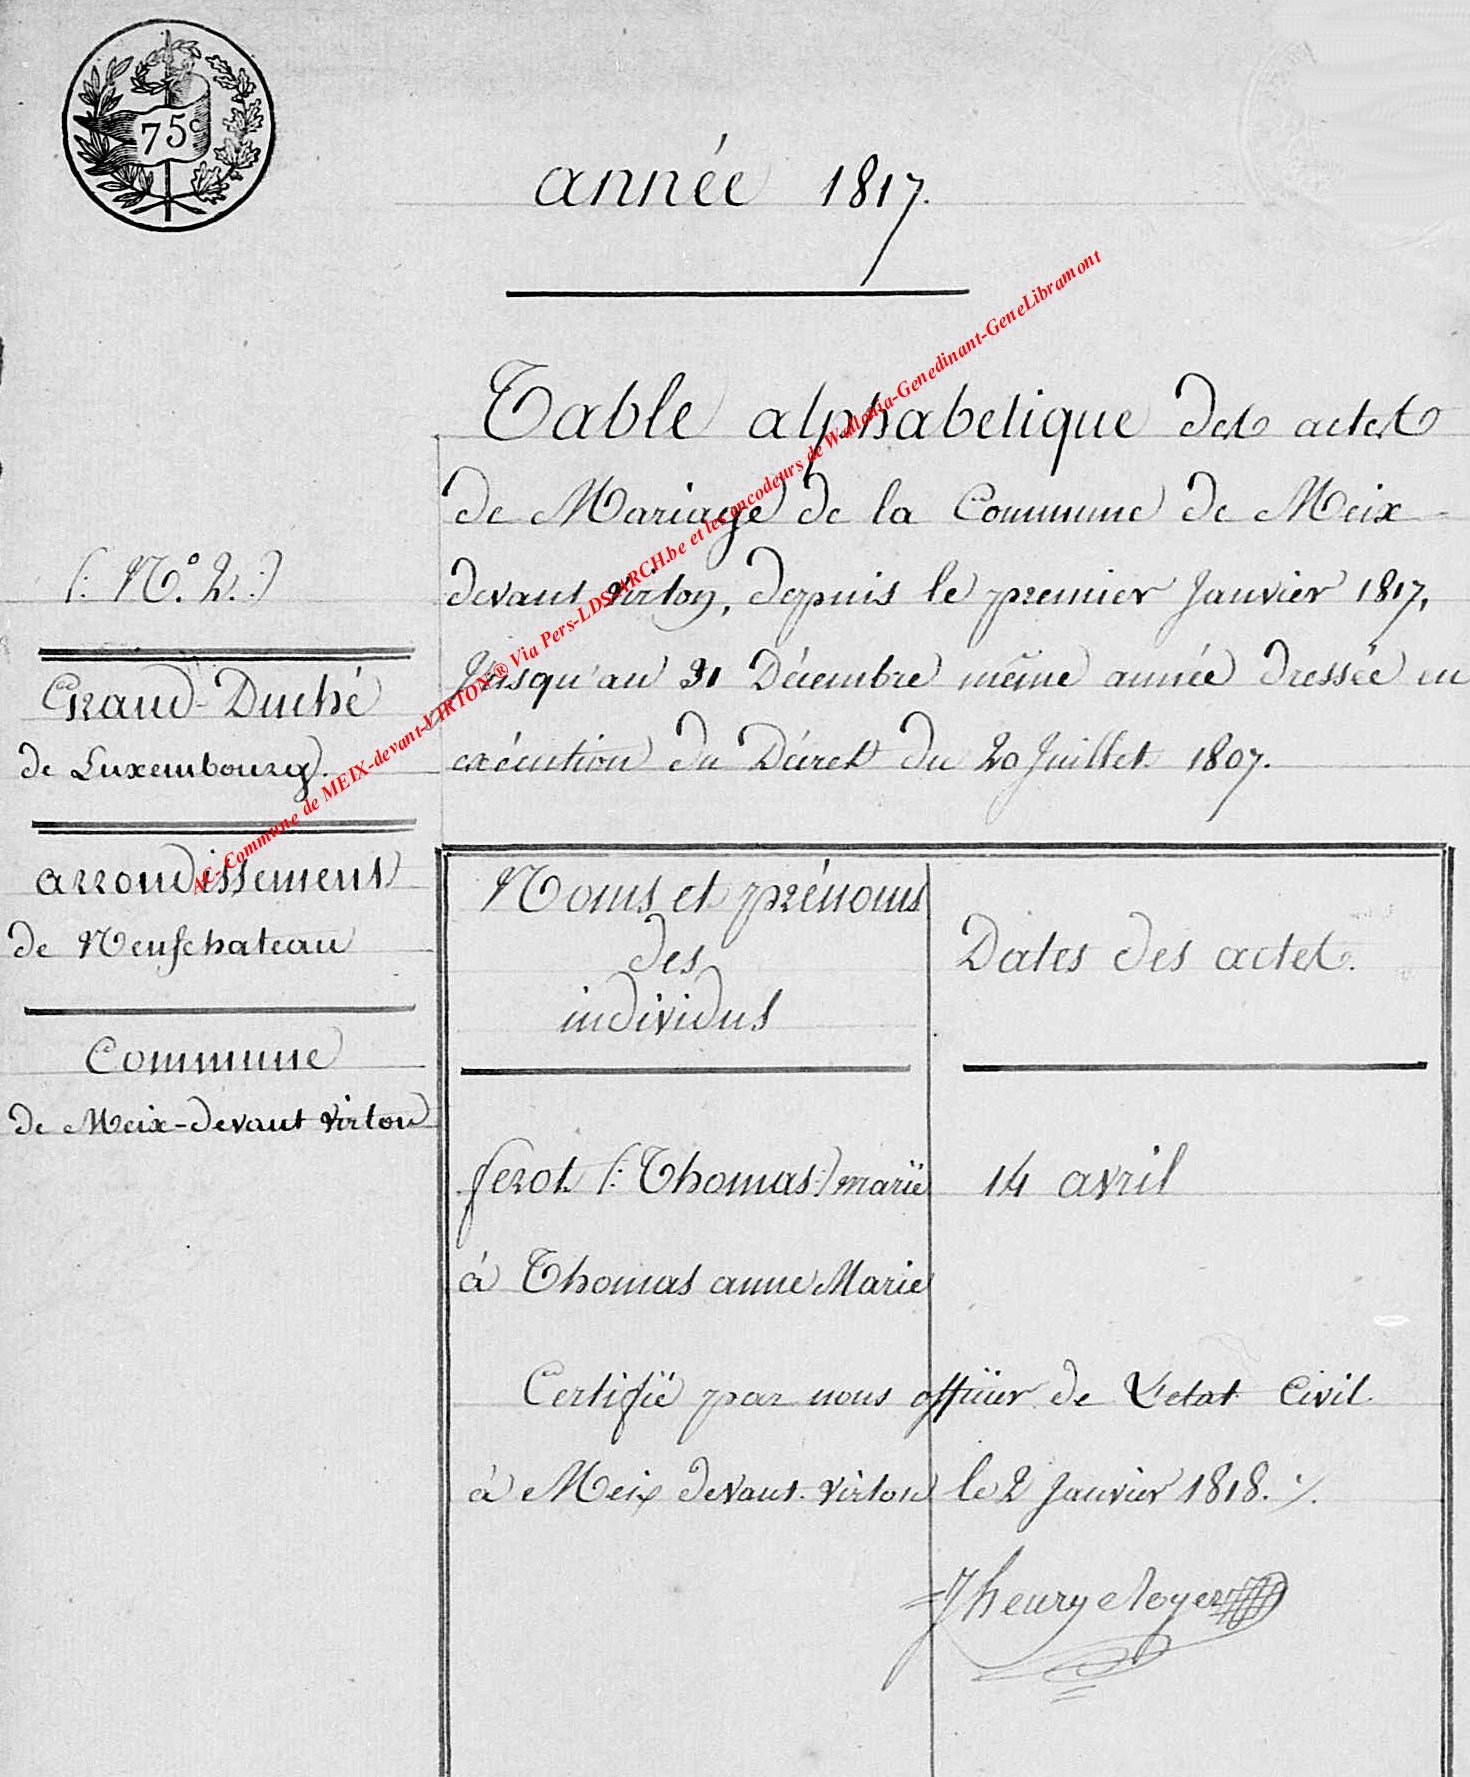 75c
année 1817.
Table alphabetique des actes
de Mariage de la Commune de Meix-
devant virton, depuis le premier Janvier 1817,
Jusqu'au 31 Décembre même année dressée en
exécution du Décret du 20 Juillet 1807.
(: N.° 2. :)
Grand-Duché
de Luxembourg.
arrondissement
de Neufchateau
Commune
de Meix-devant virton
Noms et prénoms
des
individus
Dates des actes.
ferot (: Thomas :) marië 14 avril
à Thomas anne Marie
Certifië par nous officier de L'etat Civil
à Meix devant virton le 2 Janvier 1818. ./.
Jhenry
AC- Commune de MEIX-devant-VIRTON® Via Pers-LDS-ARCH.be et les encodeurs de Wallonia-Genedinant-GeneLibramont